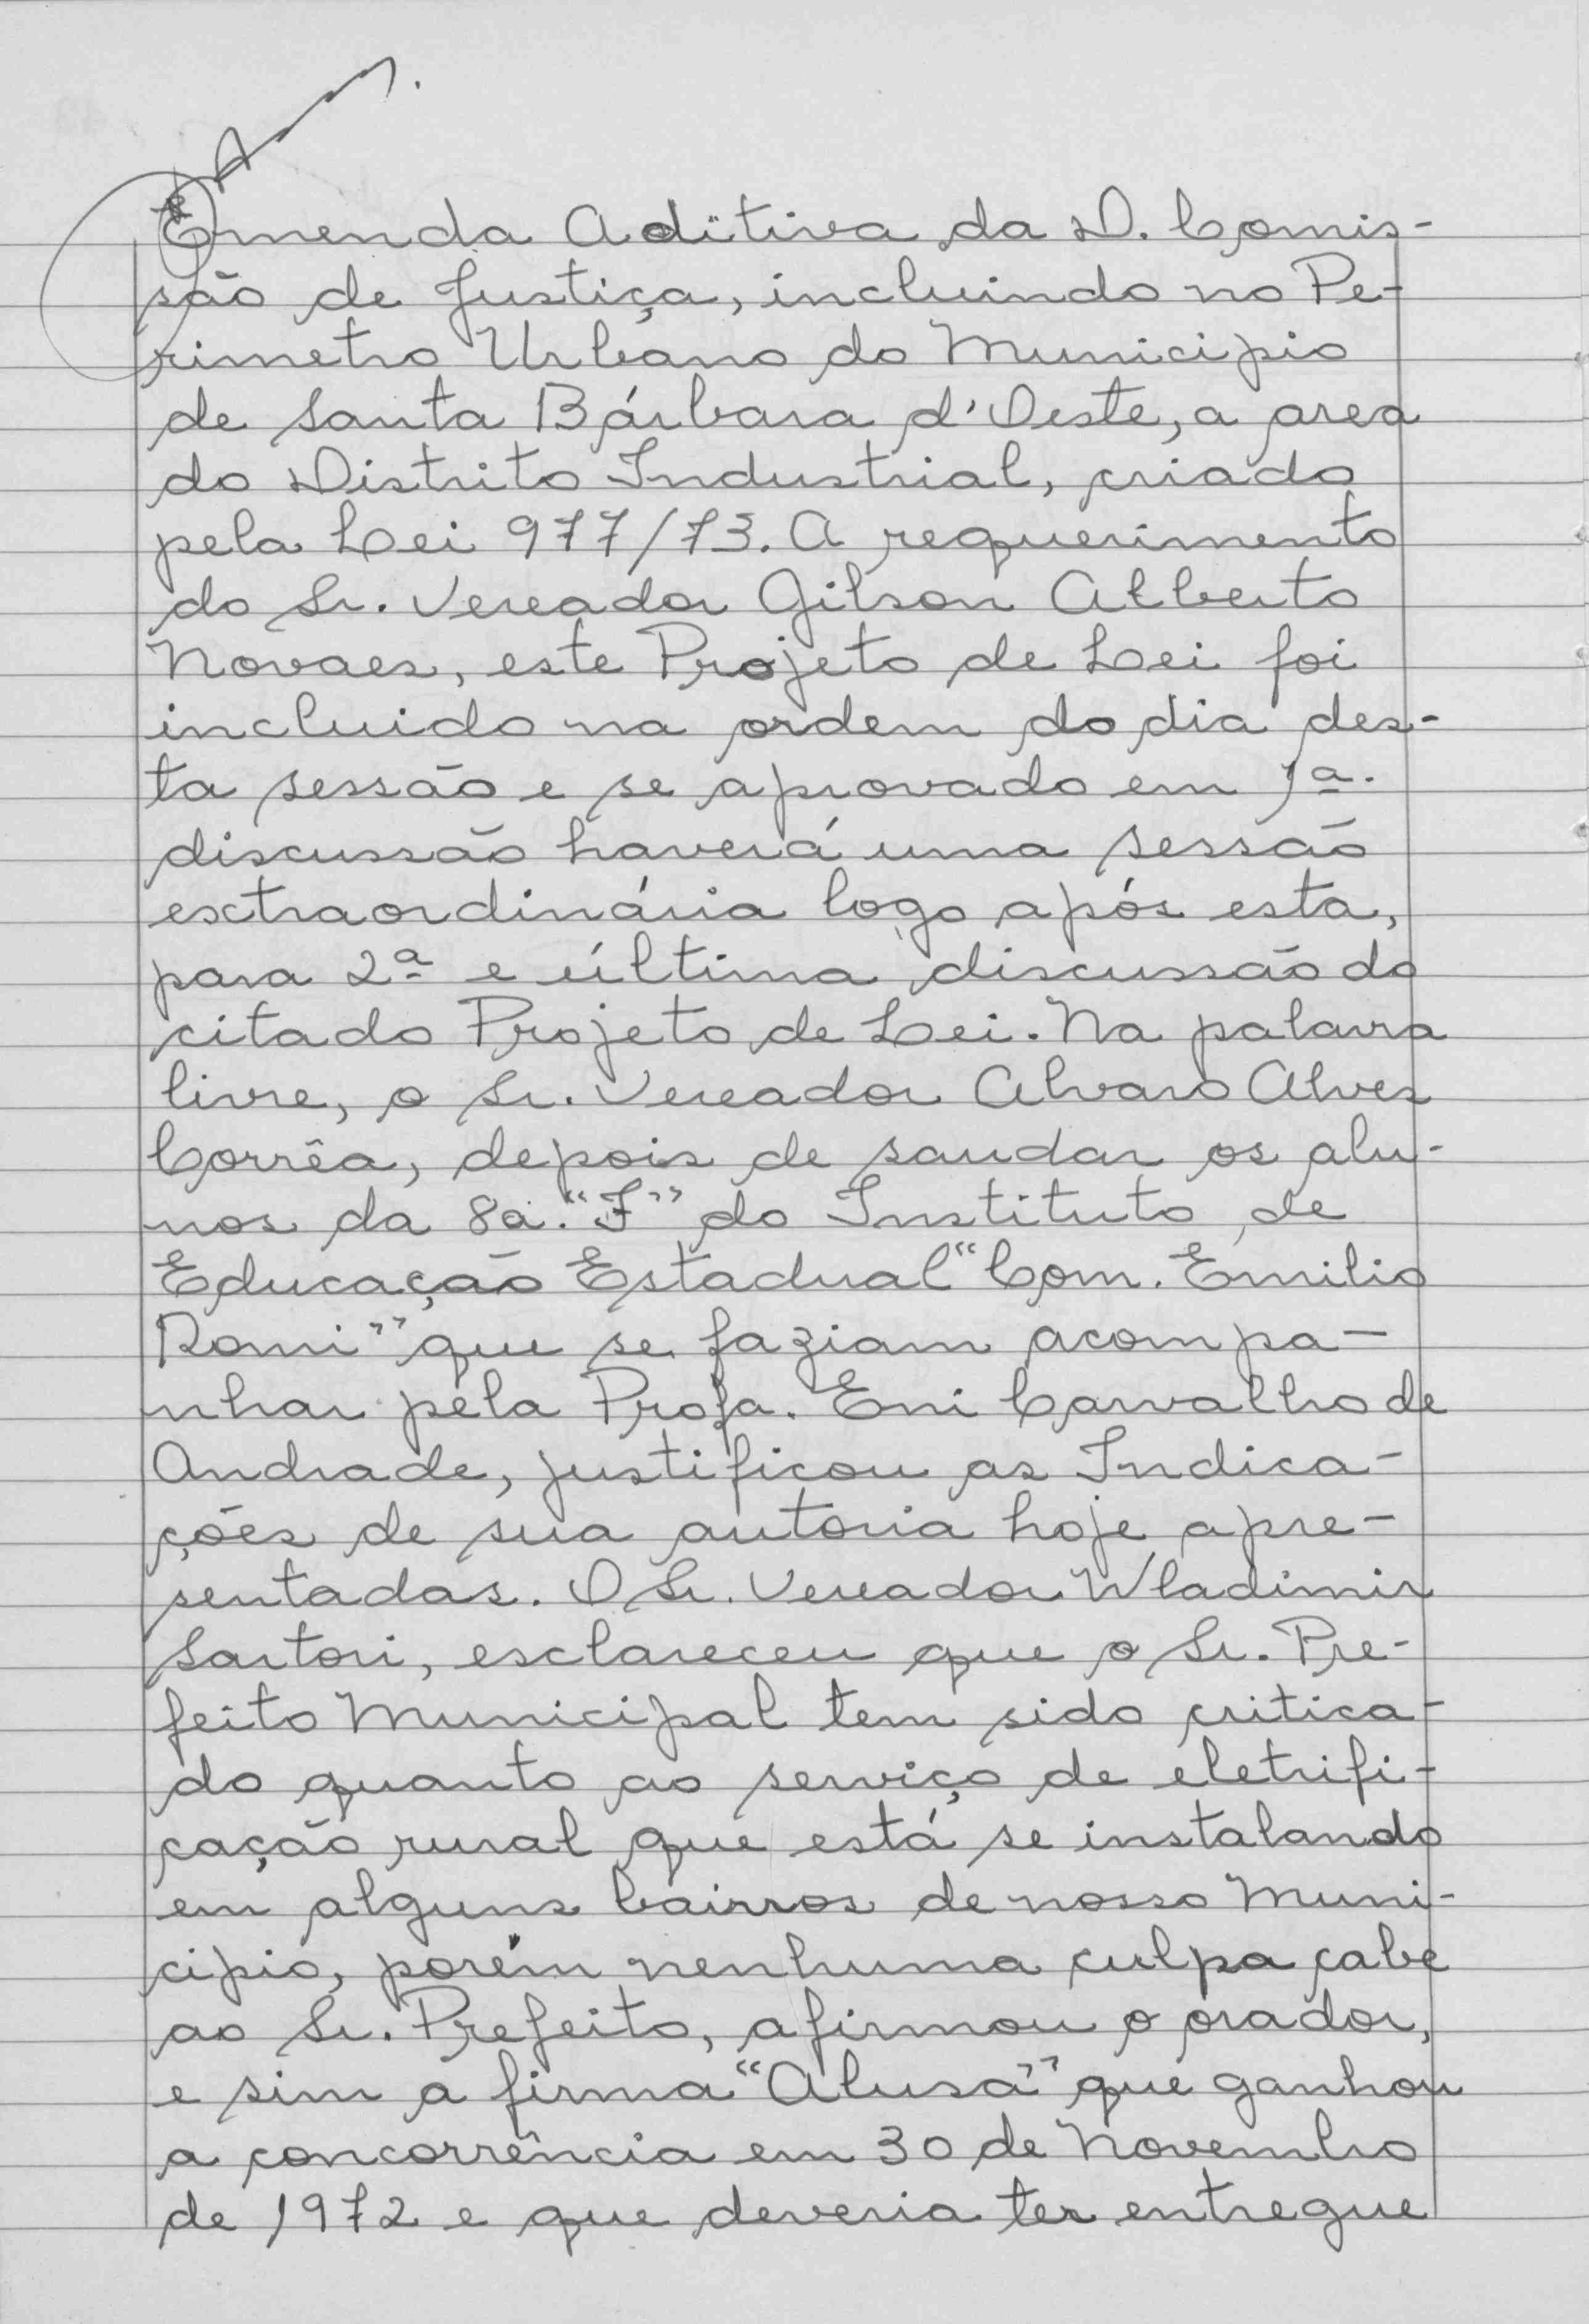 Emenda Aditiva da D. Comis-
são de Justiça, incluindo no Pe-
rimetro Urbano do Municipio
de Santa Bárbara d'Oeste, a area
do Distrito Industrial, criado
pela Lei 977/73. A requerimento
do Sr. Vereador Gilson Alberto
Novaes, este Projeto de Lei foi
incluido na ordem do dia des-
ta sessão e se aprovado em 1ª.
discussão haverá uma sessão
extraordinária logo após esta,
para 2ª e última discussão do
citado Projeto de Lei. Na palavra
livre, o Sr. Vereador Alvaro Alves
Corrêa, depois de saudar os alu-
nos da 8a. "F" do Instituto de
Educação Estadual "Com. Emilio
Romi" que se faziam acompa-
nhar pela Profa. Eni Carvalho de
Andrade, justificou as Indica-
ções de sua autoria hoje apre-
sentadas. O Sr. Vereador Wladimir
Sartori, esclareceu que o Sr. Pre-
feito Municipal tem sido critica-
do quanto ao serviço de eletrifi-
cação rural que está se instalando
em alguns bairros de nosso Muni-
cipio, porém nenhuma culpa cabe
ao Sr. Prefeito, afirmou o orador,
e sim a firma "Alusa" que ganhou
a concorrência em 30 de Novembro
de 1972 e que deveria ter entregue